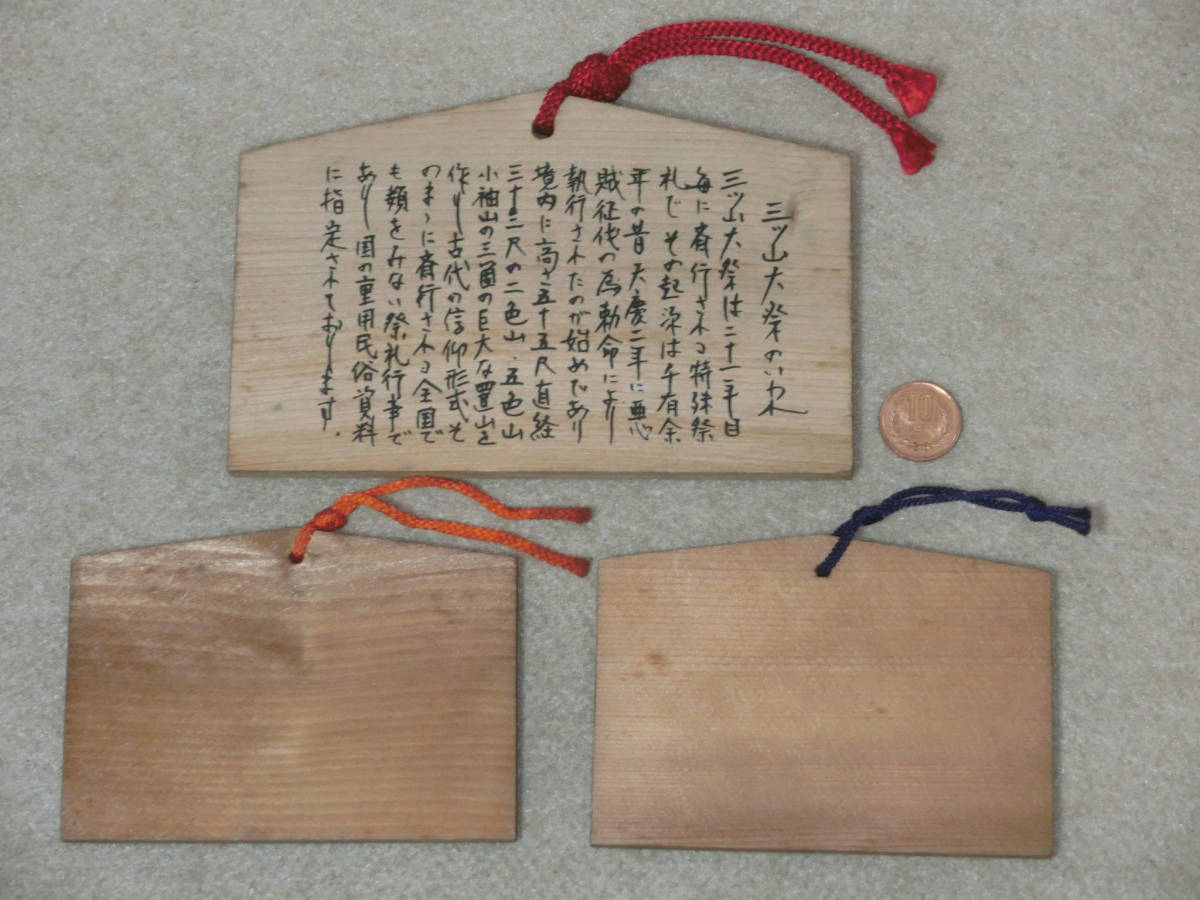 三ッ山大祭のいわれ
三ッ山大祭は二十一年目
毎に斎行される特殊祭
礼でその起源は千有余
年の昔天慶二年に悪
賊征伐の為勅命により
執行されたのが始めであり
境内に高さ五十五尺直経
三十三尺の二色山、五色山
小袖山の三箇の巨大な置山を
作り古代の信仰形式そ
のまゝに斎行される全国で
も類をみない祭礼行事で
あり国の重用民俗資料
に指定されております.
10